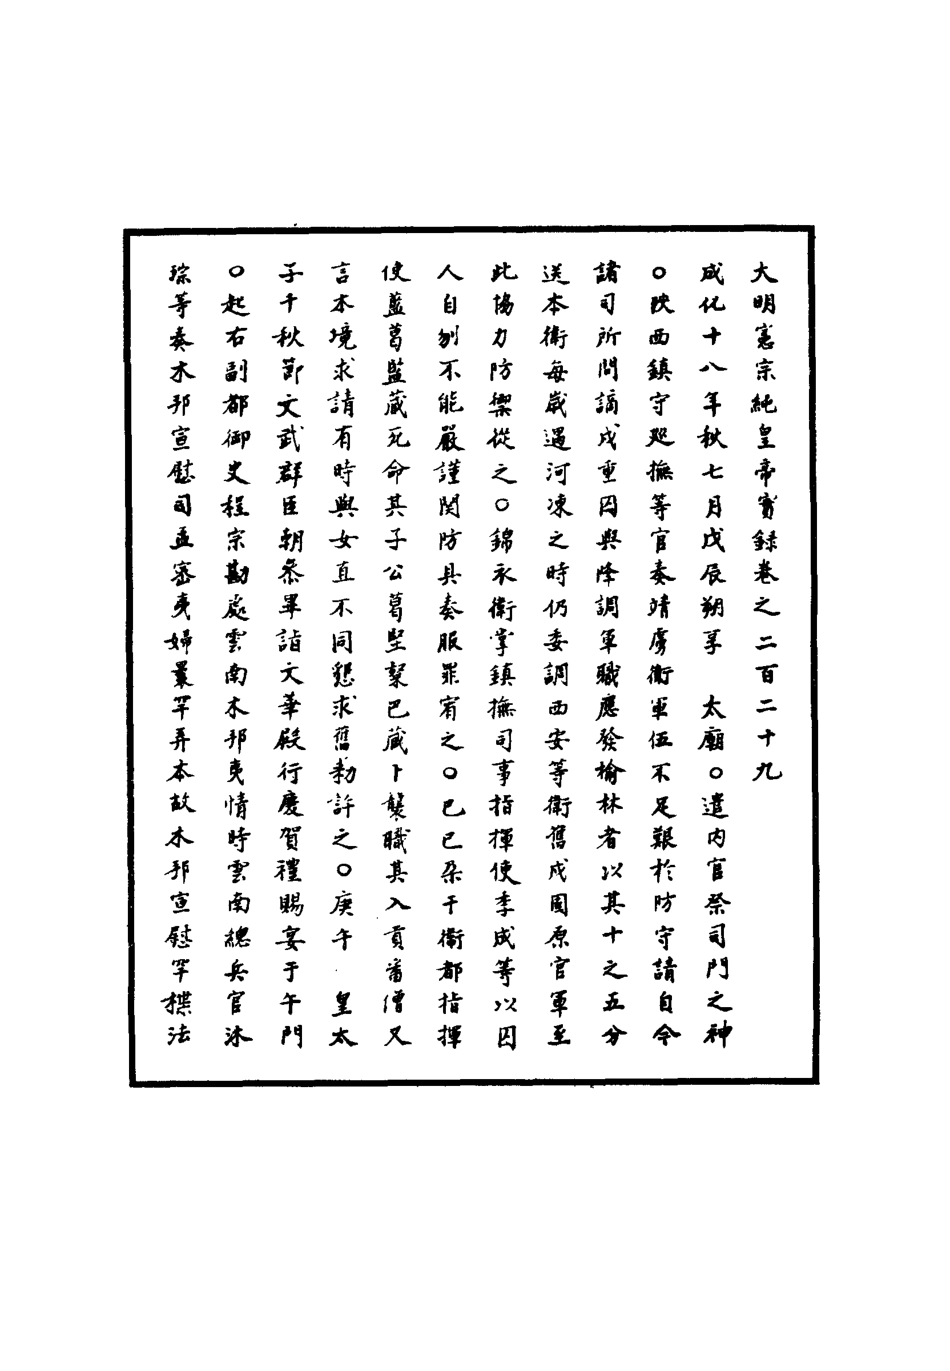 大明憲宗純皇帝實録卷之二百二十九
成化十八年秋七月戊辰朔享　太廟○遣内官祭司門之神
○陜西鎮守廵撫等官奏靖虜衛軍伍不足艱於防守請自今
諸司所問謫戍重囚與降調軍職應發榆林者以其十之五分
送本衛每歲遇河凍之時仍委調西安等衛舊戍固原官軍至
此恊力防禦從之○錦衣衛掌鎮撫司事指揮使李成等以囚
人自刎不能嚴謹関防具奏服罪宥之○己巳朶干衛都指揮
使藍葛監藏死命其子公葛坚粲巴藏卜襲職其入貢畨僧又
言本境求請有時與女直不同懇求舊勑許之○庚午　皇太
子千秋節文武群臣朝叅畢詣文華殿行慶賀禮賜宴于午門
○起右副都御史程宗勘處雲南木邦夷情時雲南總兵官沐
琮等奏木邦宣慰司孟密夷婦曩罕弄本故木邦宣慰罕楪法